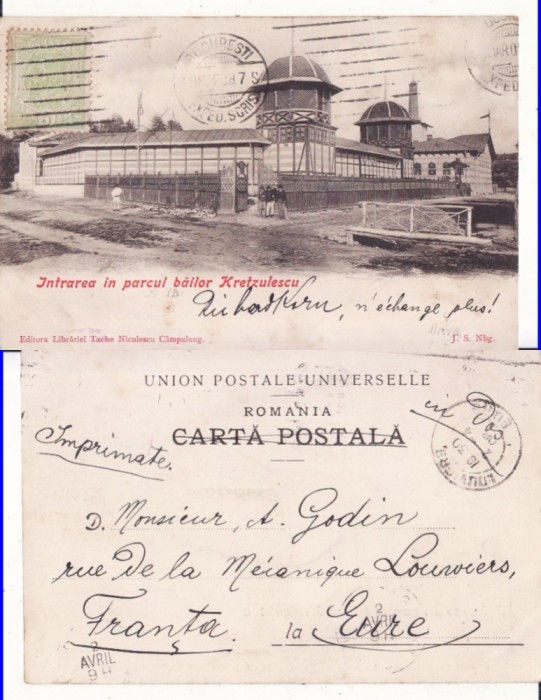 BUCURESTI
EXPED. SCRIS
Intrarea in parcul băilor Kretzulescu
Richard Korn, n'échange plus!
Editura Librăriei Tache Niculescu Câmpulung.
J. S. Nbg.
UNION POSTALE UNIVERSELLE
ROMANIA
CARTĂ POSTALĂ
Imprimate.
in Dos
D. Monsieur, A. Godin
rue De la Mécanique Louwiers,
Franța. la Eure
2
AVRIL